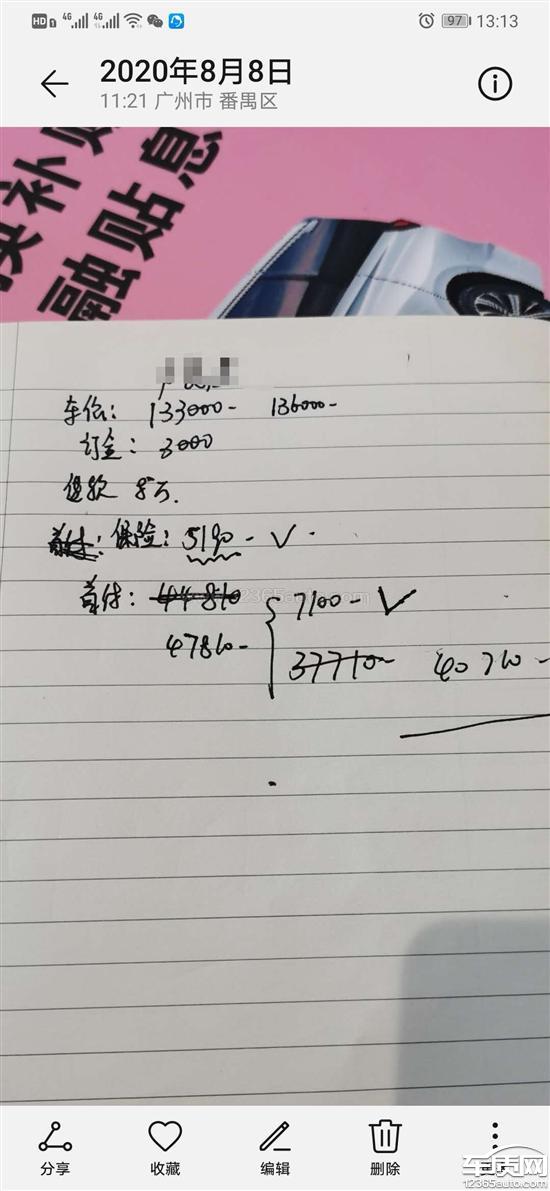 HD 4G 4G 97 13:13
2020年8月8日
11:21 广州市 番禺区
换补贴
融贴息
车价: 133000- 136000-
订金: 3000
贷款 8万.
首付: 保险: 5190- √.
首付: 44810 7100- √
47810- 37710- 40710-
12365auto.com
分享 收藏 编辑 删除 更多
车质网
12365auto.com